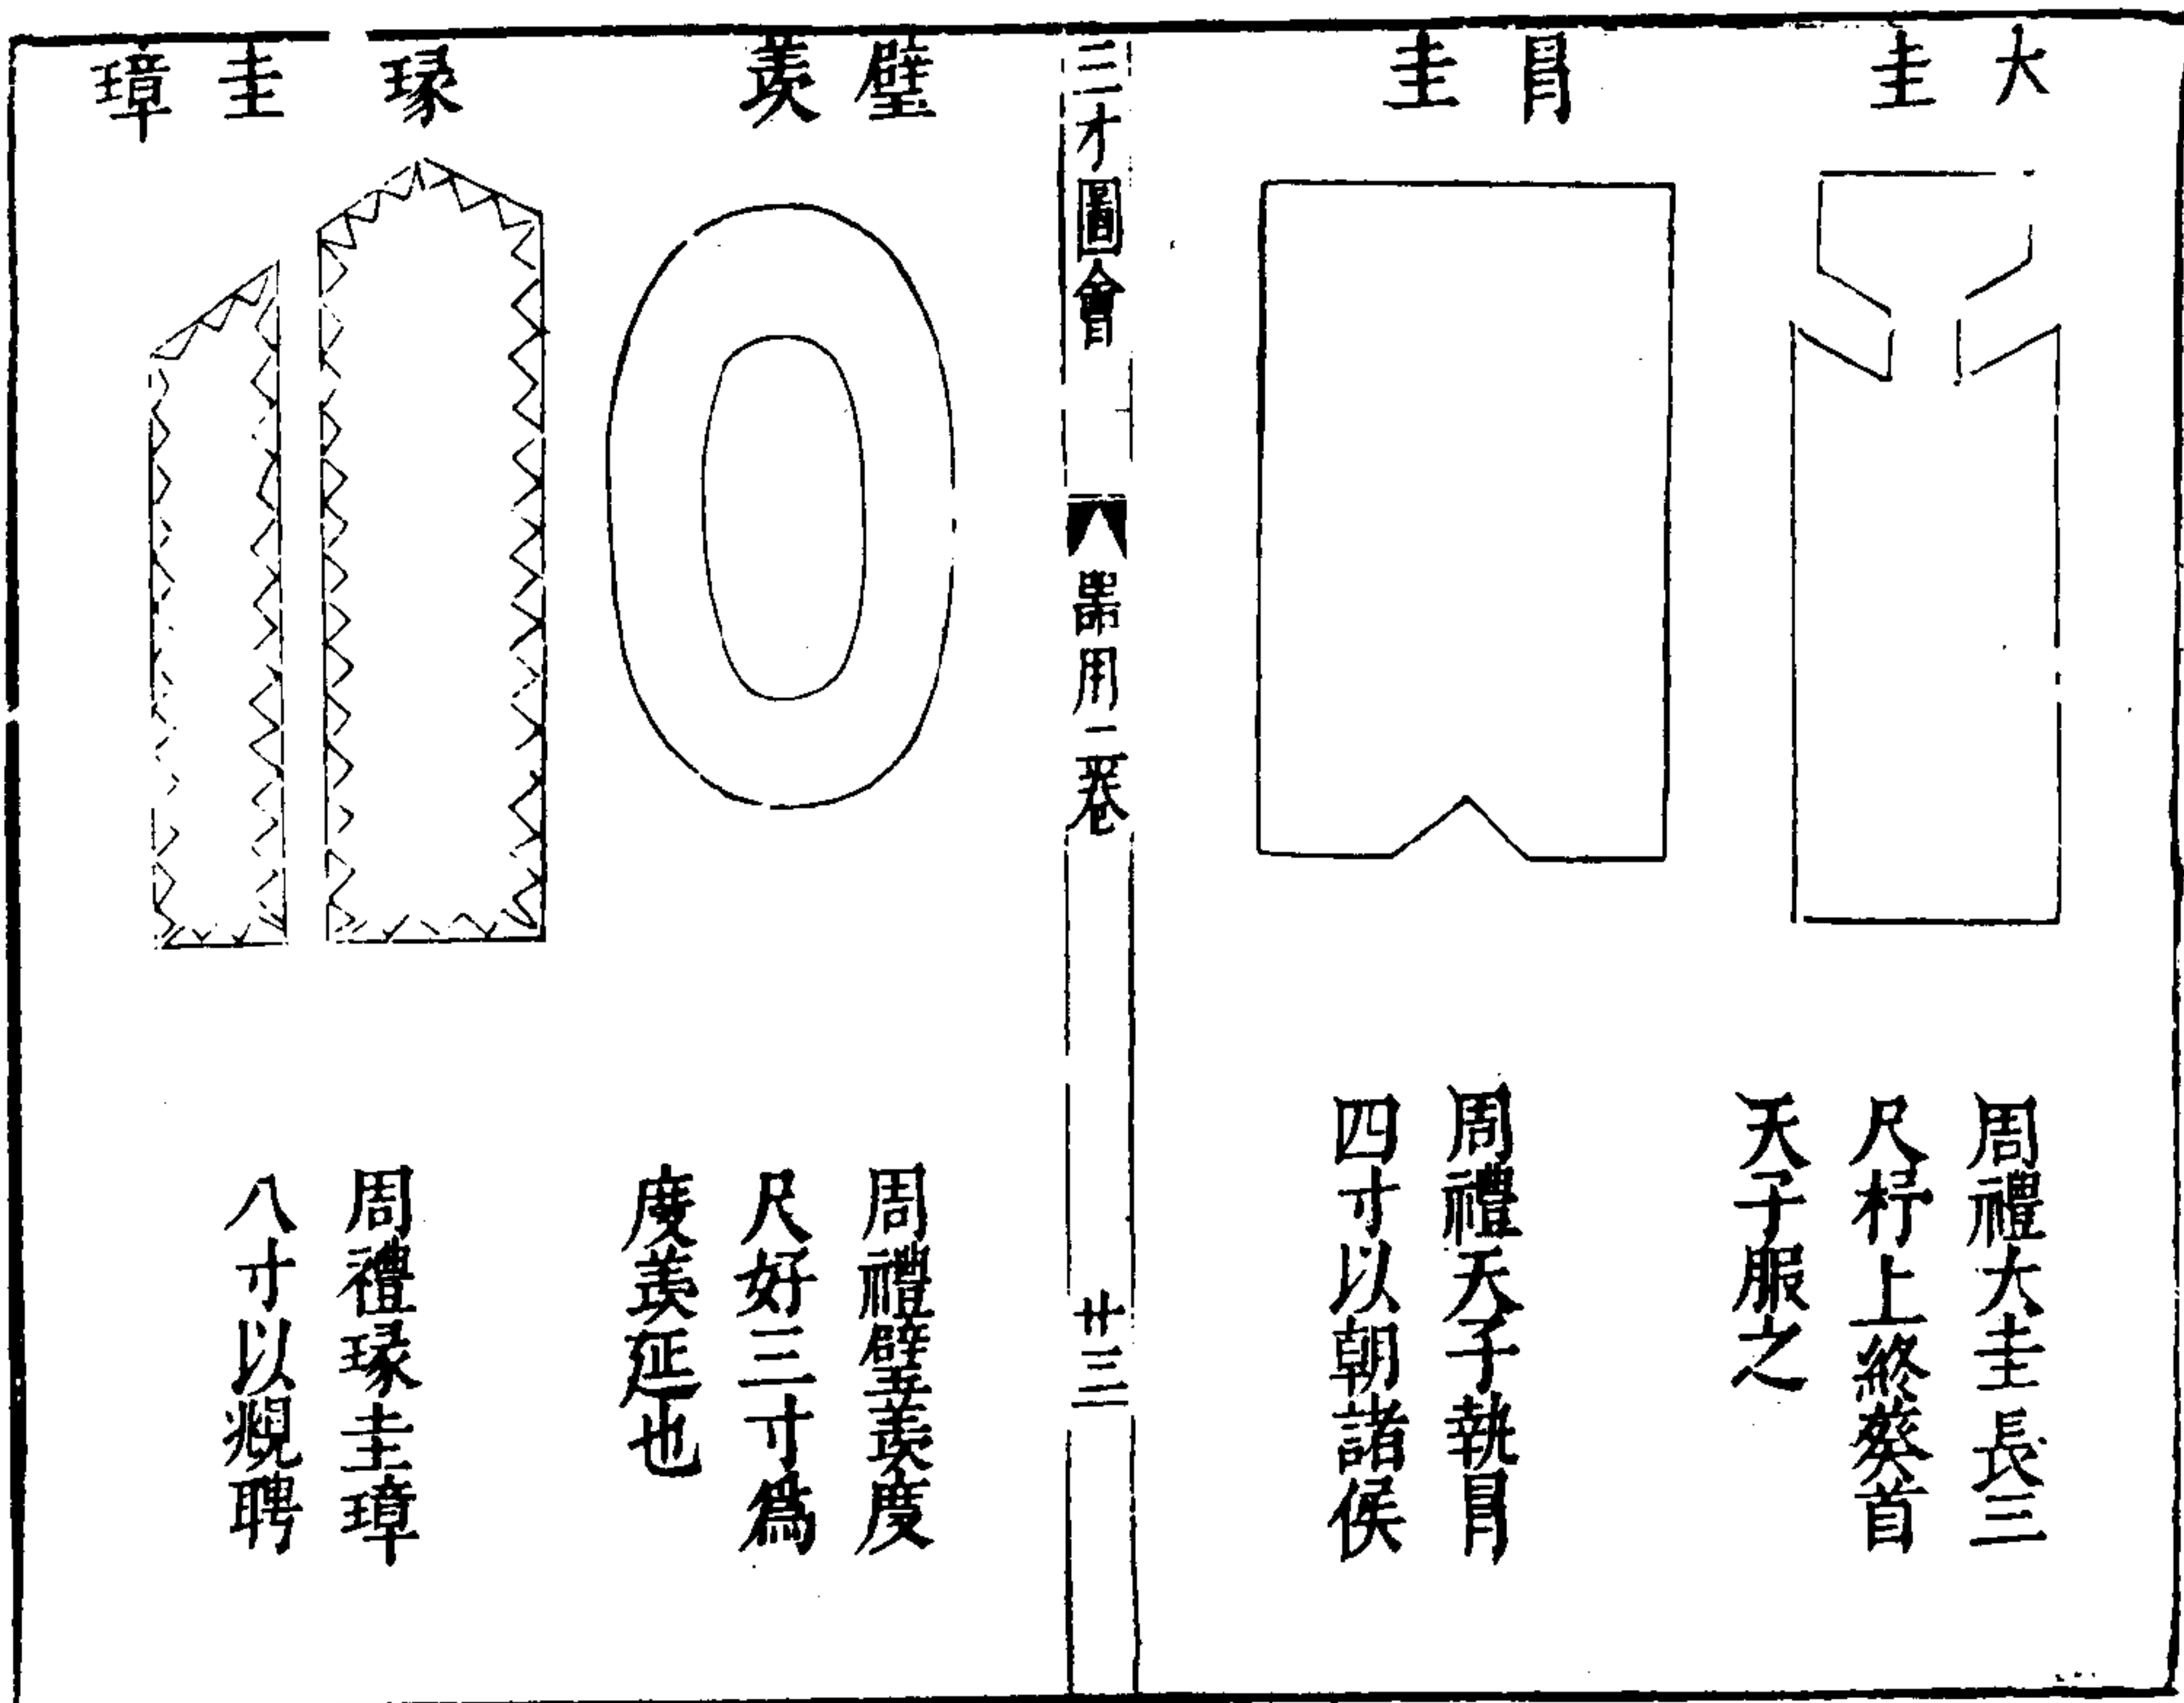 大圭
冐圭
周禮大圭長三
尺杼上終葵首
天子服之
周禮天子執冐
四寸以朝諸侯
三才圖會
器用二卷
廿三
璧羨
瑑圭璋
周禮璧羨度
尺好三寸爲
度羨延也
周禮瑑圭璋
八寸以覜聘